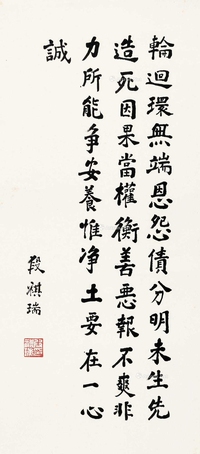 輪迴環無端恩怨債分明未生先
造死因果當權衡善悪報不爽非
力所能争安養惟净土要在一心
誠
段祺瑞